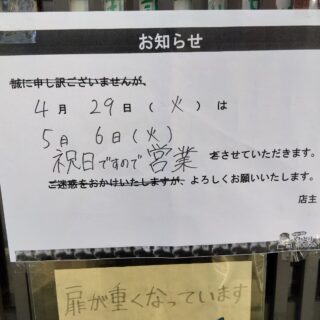 お知らせ
誠に申し訳ございませんが、
4月 29日(火)は
5月 6日(火)
祝日ですので営業をさせていただきます。
ご迷惑をおかけいたしますが、よろしくお願いいたします。
店主
扉が重くなっています